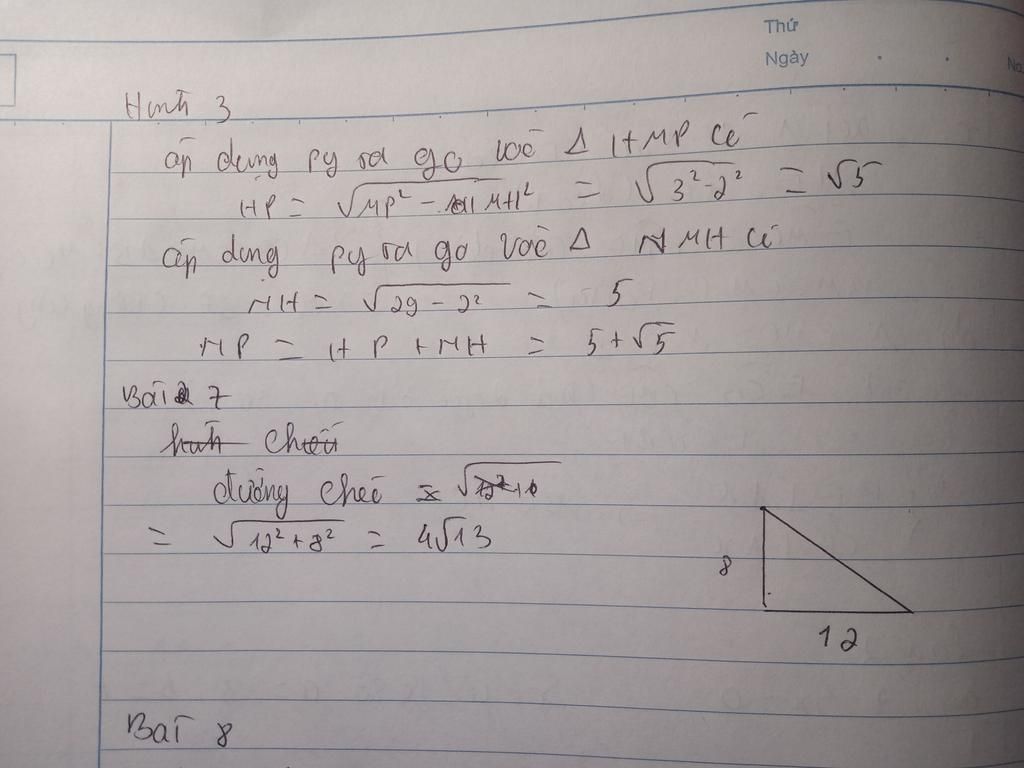 Thứ
Ngày
No
Hình 3
áp dụng py ta go với Δ HMP Có
HP = √MP² - MH² = √3² - 2² = √5
áp dụng py ta go với Δ NMH Có
NH = √29 - 2² = 5
NP = HP + NH = 5 + √5
Bài 7
hình chiếu
đường chéo = √12² + 
= √12² + 8² = 4√13
8
12
Bài 8